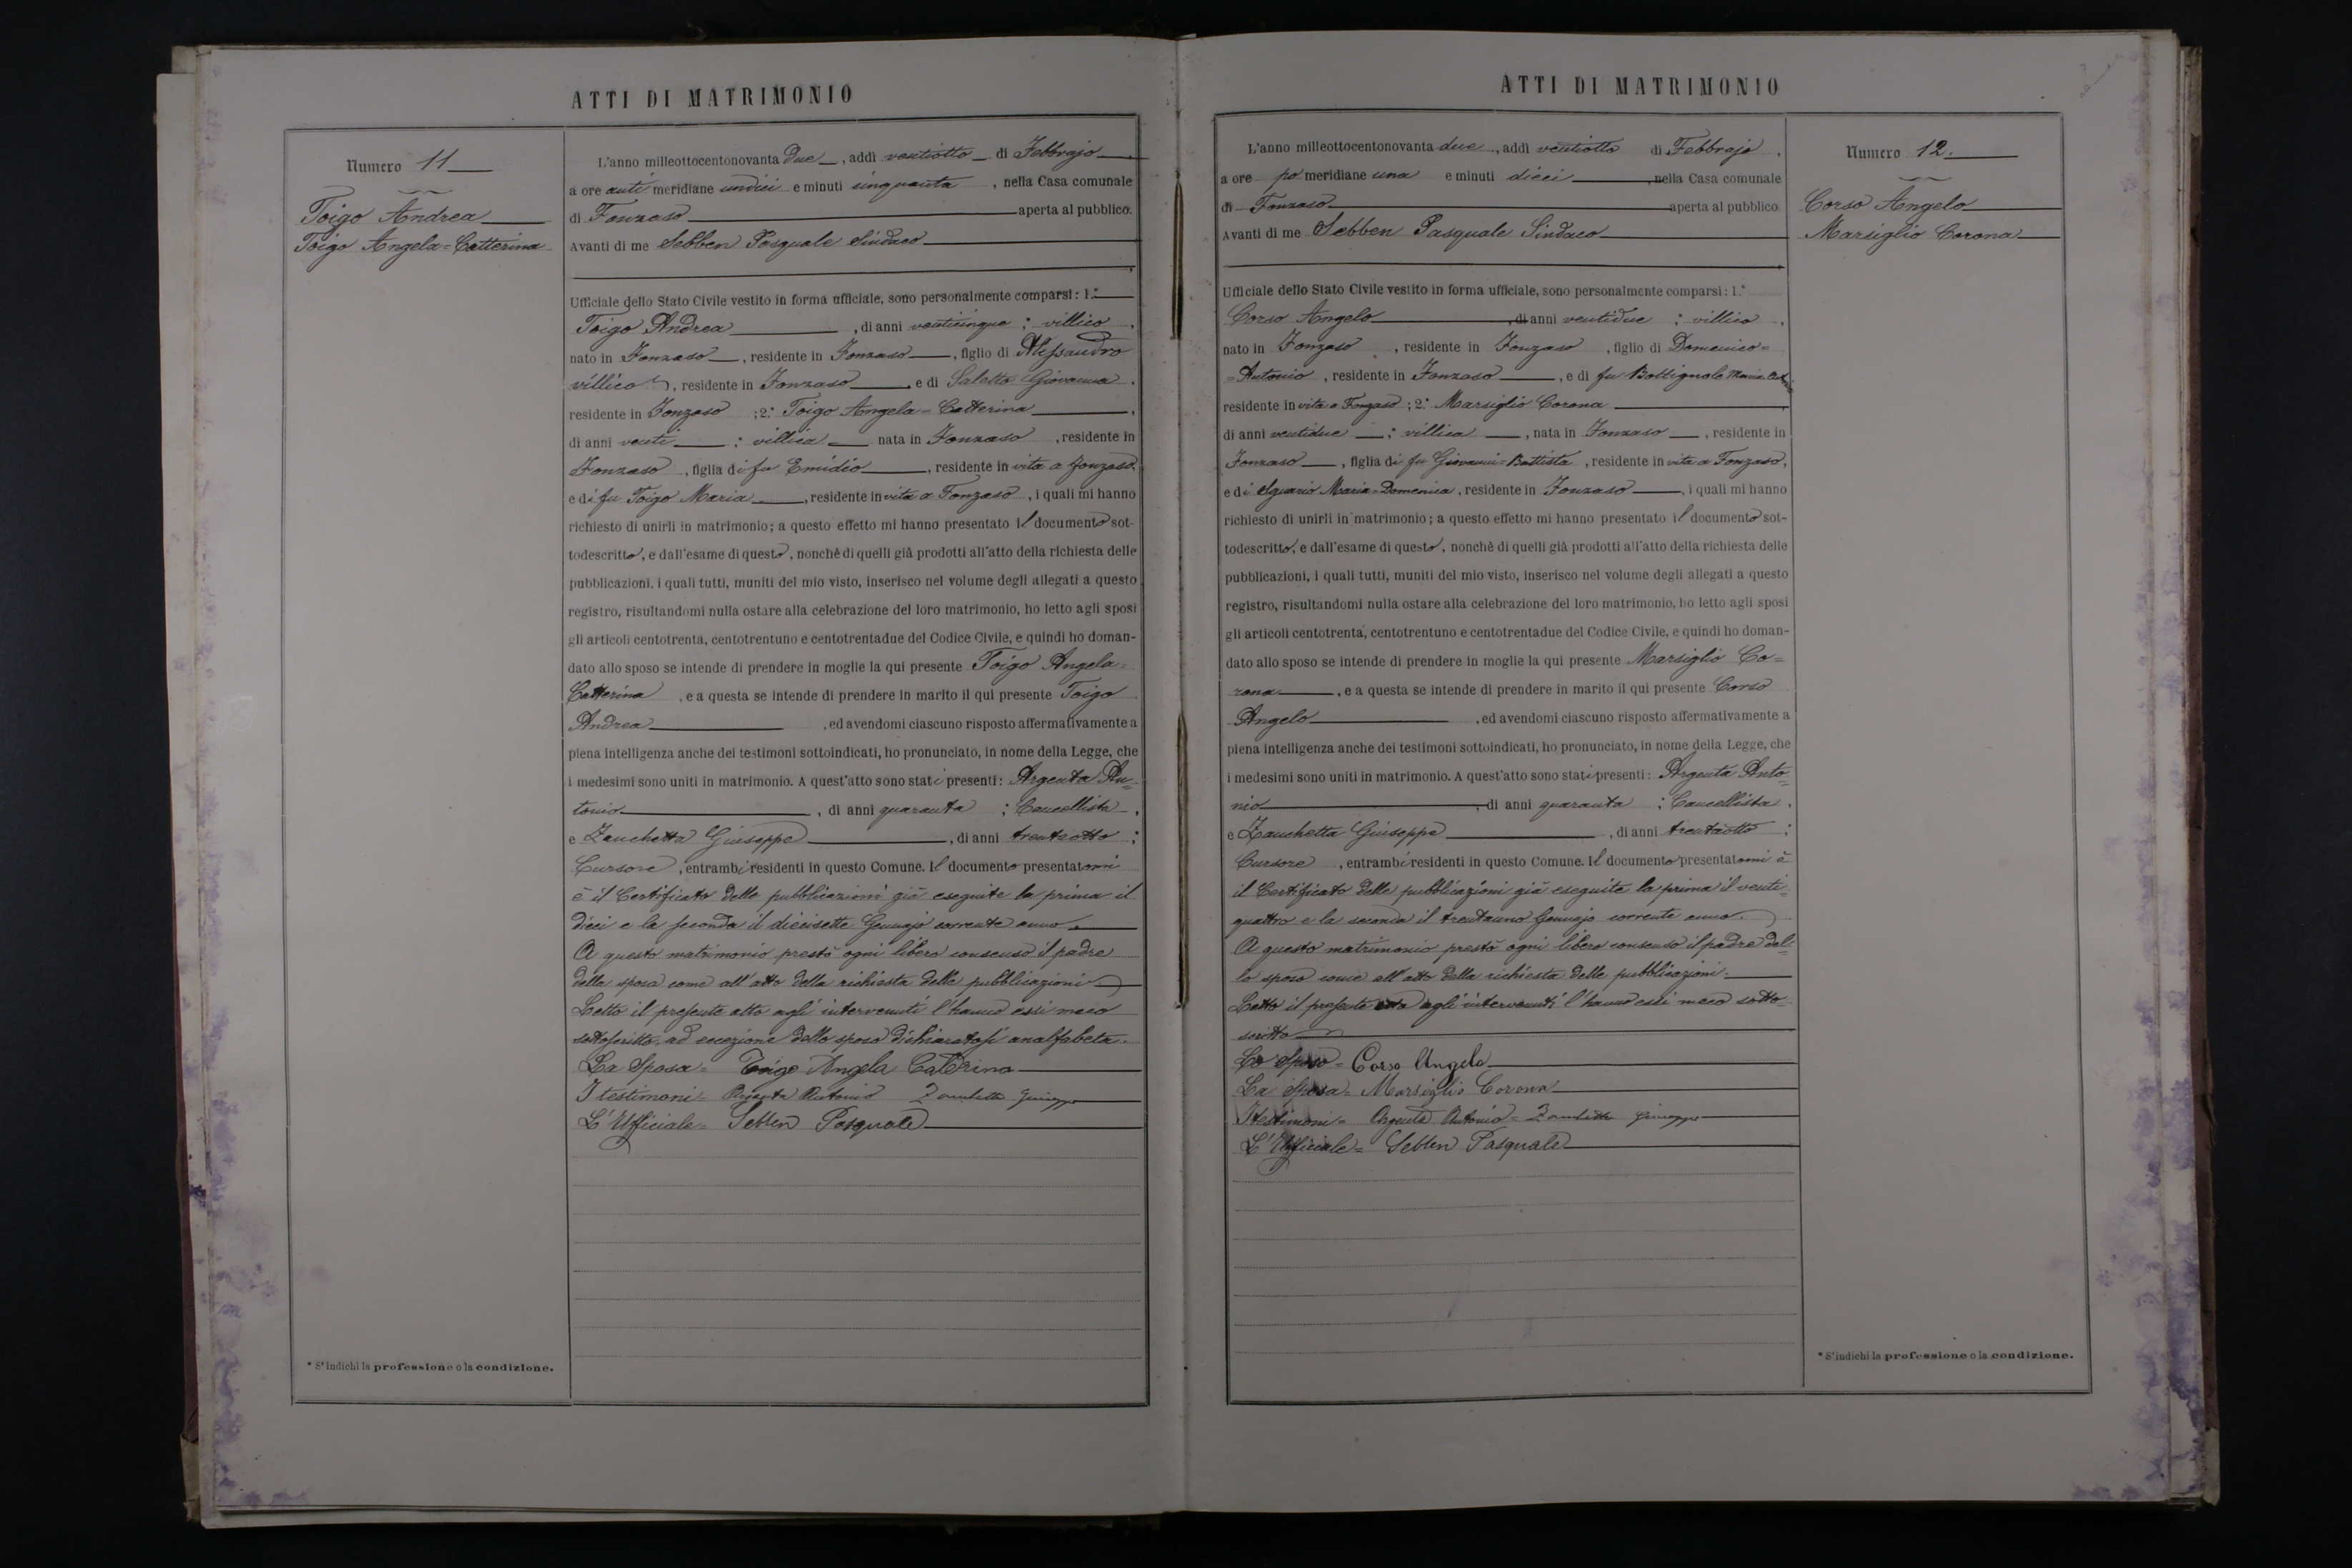 ATTI DI MATRIMONIO
Numero 11
Toigo Andrea
Toigo Angela=Catterina
L'anno milleottocentonovanta due, addì ventiotto di Febbrajo
a ore anti meridiane undici e minuti cinquanta, nella Casa comunale
di Fonzaso aperta al pubblico.
Avanti di me Sebben Pasquale Sindaco
Ufficiale dello Stato Civile vestito in forma ufficiale, sono personalmente comparsi: 1.°
Toigo Andrea, di anni venticinque; villico,
nato in Fonzaso, residente in Fonzaso, figlio di Alessandro
villico, residente in Fonzaso, e di Saletto Giovanna,
residente in Fonzaso; 2.° Toigo Angela=Catterina,
di anni venti; villica nata in Fonzaso, residente in
Fonzaso, figlia di fu Emidio, residente in vita a Fonzaso,
e di fu Toigo Maria, residente in vita a Fonzaso, i quali mi hanno
richiesto di unirli in matrimonio; a questo effetto mi hanno presentato il documento sot-
todescritto, e dall'esame di questo, nonchè di quelli già prodotti all'atto della richiesta delle
pubblicazioni, i quali tutti, muniti del mio visto, inserisco nel volume degli allegati a questo
registro, risultandomi nulla ostare alla celebrazione del loro matrimonio, ho letto agli sposi
gli articoli centotrenta, centotrentuno e centotrentadue del Codice Civile, e quindi ho doman-
dato allo sposo se intende di prendere in moglie la qui presente Toigo Angela=
Catterina, e a questa se intende di prendere in marito il qui presente Toigo
Andrea, ed avendomi ciascuno risposto affermativamente a
piena intelligenza anche dei testimoni sottoindicati, ho pronunciato, in nome della Legge, che
i medesimi sono uniti in matrimonio. A quest'atto sono stati presenti: Argenta An=
tonio, di anni quaranta; Cancellista,
e Zanchetta Giuseppe, di anni trentaotto;
Cursore, entrambi residenti in questo Comune. Il documento presentatomi
è il Certificato delle pubblicazioni già eseguite la prima il
dieci e la seconda il diecisette Gennajo corrente anno.
A questo matrimonio prestò ogni libero consenso il padre
della sposa come all'atto della richiesta delle pubblicazioni
Letto il presente atto agli intervenuti l'hanno essi meco
sottoscritto, ad eccezione dello sposo dichiaratosi analfabeta.
La Sposa= Toigo Angela Caterina
I testimoni= Argenta Antonio Zanchetta Giuseppe
L'Ufficiale= Sebben Pasquale
* S'indichi la professione o la condizione.
ATTI DI MATRIMONIO
Numero 12.
Corso Angelo
Marsiglio Corona
L'anno milleottocentonovanta due, addì ventiotto di Febbrajo,
a ore po meridiane una e minuti dieci, nella Casa comunale
di Fonzaso aperta al pubblico
Avanti di me Sebben Pasquale Sindaco
Ufficiale dello Stato Civile vestito in forma ufficiale, sono personalmente comparsi: 1.°
Corso Angelo, di anni ventidue; villico,
nato in Fonzaso, residente in Fonzaso, figlio di Domenico=
=Antonio, residente in Fonzaso, e di fu Bottignolo Maria
residente in vita a Fonzaso; 2.° Marsiglio Corona
di anni ventidue; villica, nata in Fonzaso, residente in
Fonzaso, figlia di fu Giovanni=Battista, residente in vita a Fonzaso,
e di Sguario Maria=Domenica, residente in Fonzaso, i quali mi hanno
richiesto di unirli in matrimonio; a questo effetto mi hanno presentato il documento sot-
todescritto, e dall'esame di questo, nonchè di quelli già prodotti all'atto della richiesta delle
pubblicazioni, i quali tutti, muniti del mio visto, inserisco nel volume degli allegati a questo
registro, risultandomi nulla ostare alla celebrazione del loro matrimonio, ho letto agli sposi
gli articoli centotrenta, centotrentuno e centotrentadue del Codice Civile, e quindi ho doman-
dato allo sposo se intende di prendere in moglie la qui presente Marsiglio Co=
rona, e a questa se intende di prendere in marito il qui presente Corso
Angelo, ed avendomi ciascuno risposto affermativamente a
piena intelligenza anche dei testimoni sottoindicati, ho pronunciato, in nome della Legge, che
i medesimi sono uniti in matrimonio. A quest'atto sono stati presenti: Argenta Anto=
nio, di anni quaranta; Cancellista,
e Zanchetta Giuseppe, di anni trentaotto;
Cursore, entrambi residenti in questo Comune. Il documento presentatomi è
il Certificato delle pubblicazioni già eseguite la prima il venti=
quattro e la seconda il trentauno Gennajo corrente anno.
A questo matrimonio prestò ogni libero consenso il padre del=
lo sposo come all'atto della richiesta delle pubblicazioni.
Letto il presente atto agli intervenuti l'hanno essi meco sotto=
scritto
Lo Sposo= Corso Angelo
La Sposa= Marsiglio Corona
I testimoni= Argenta Antonio= Zanchetta Giuseppe
L'Ufficiale= Sebben Pasquale
* S'indichi la professione o la condizione.